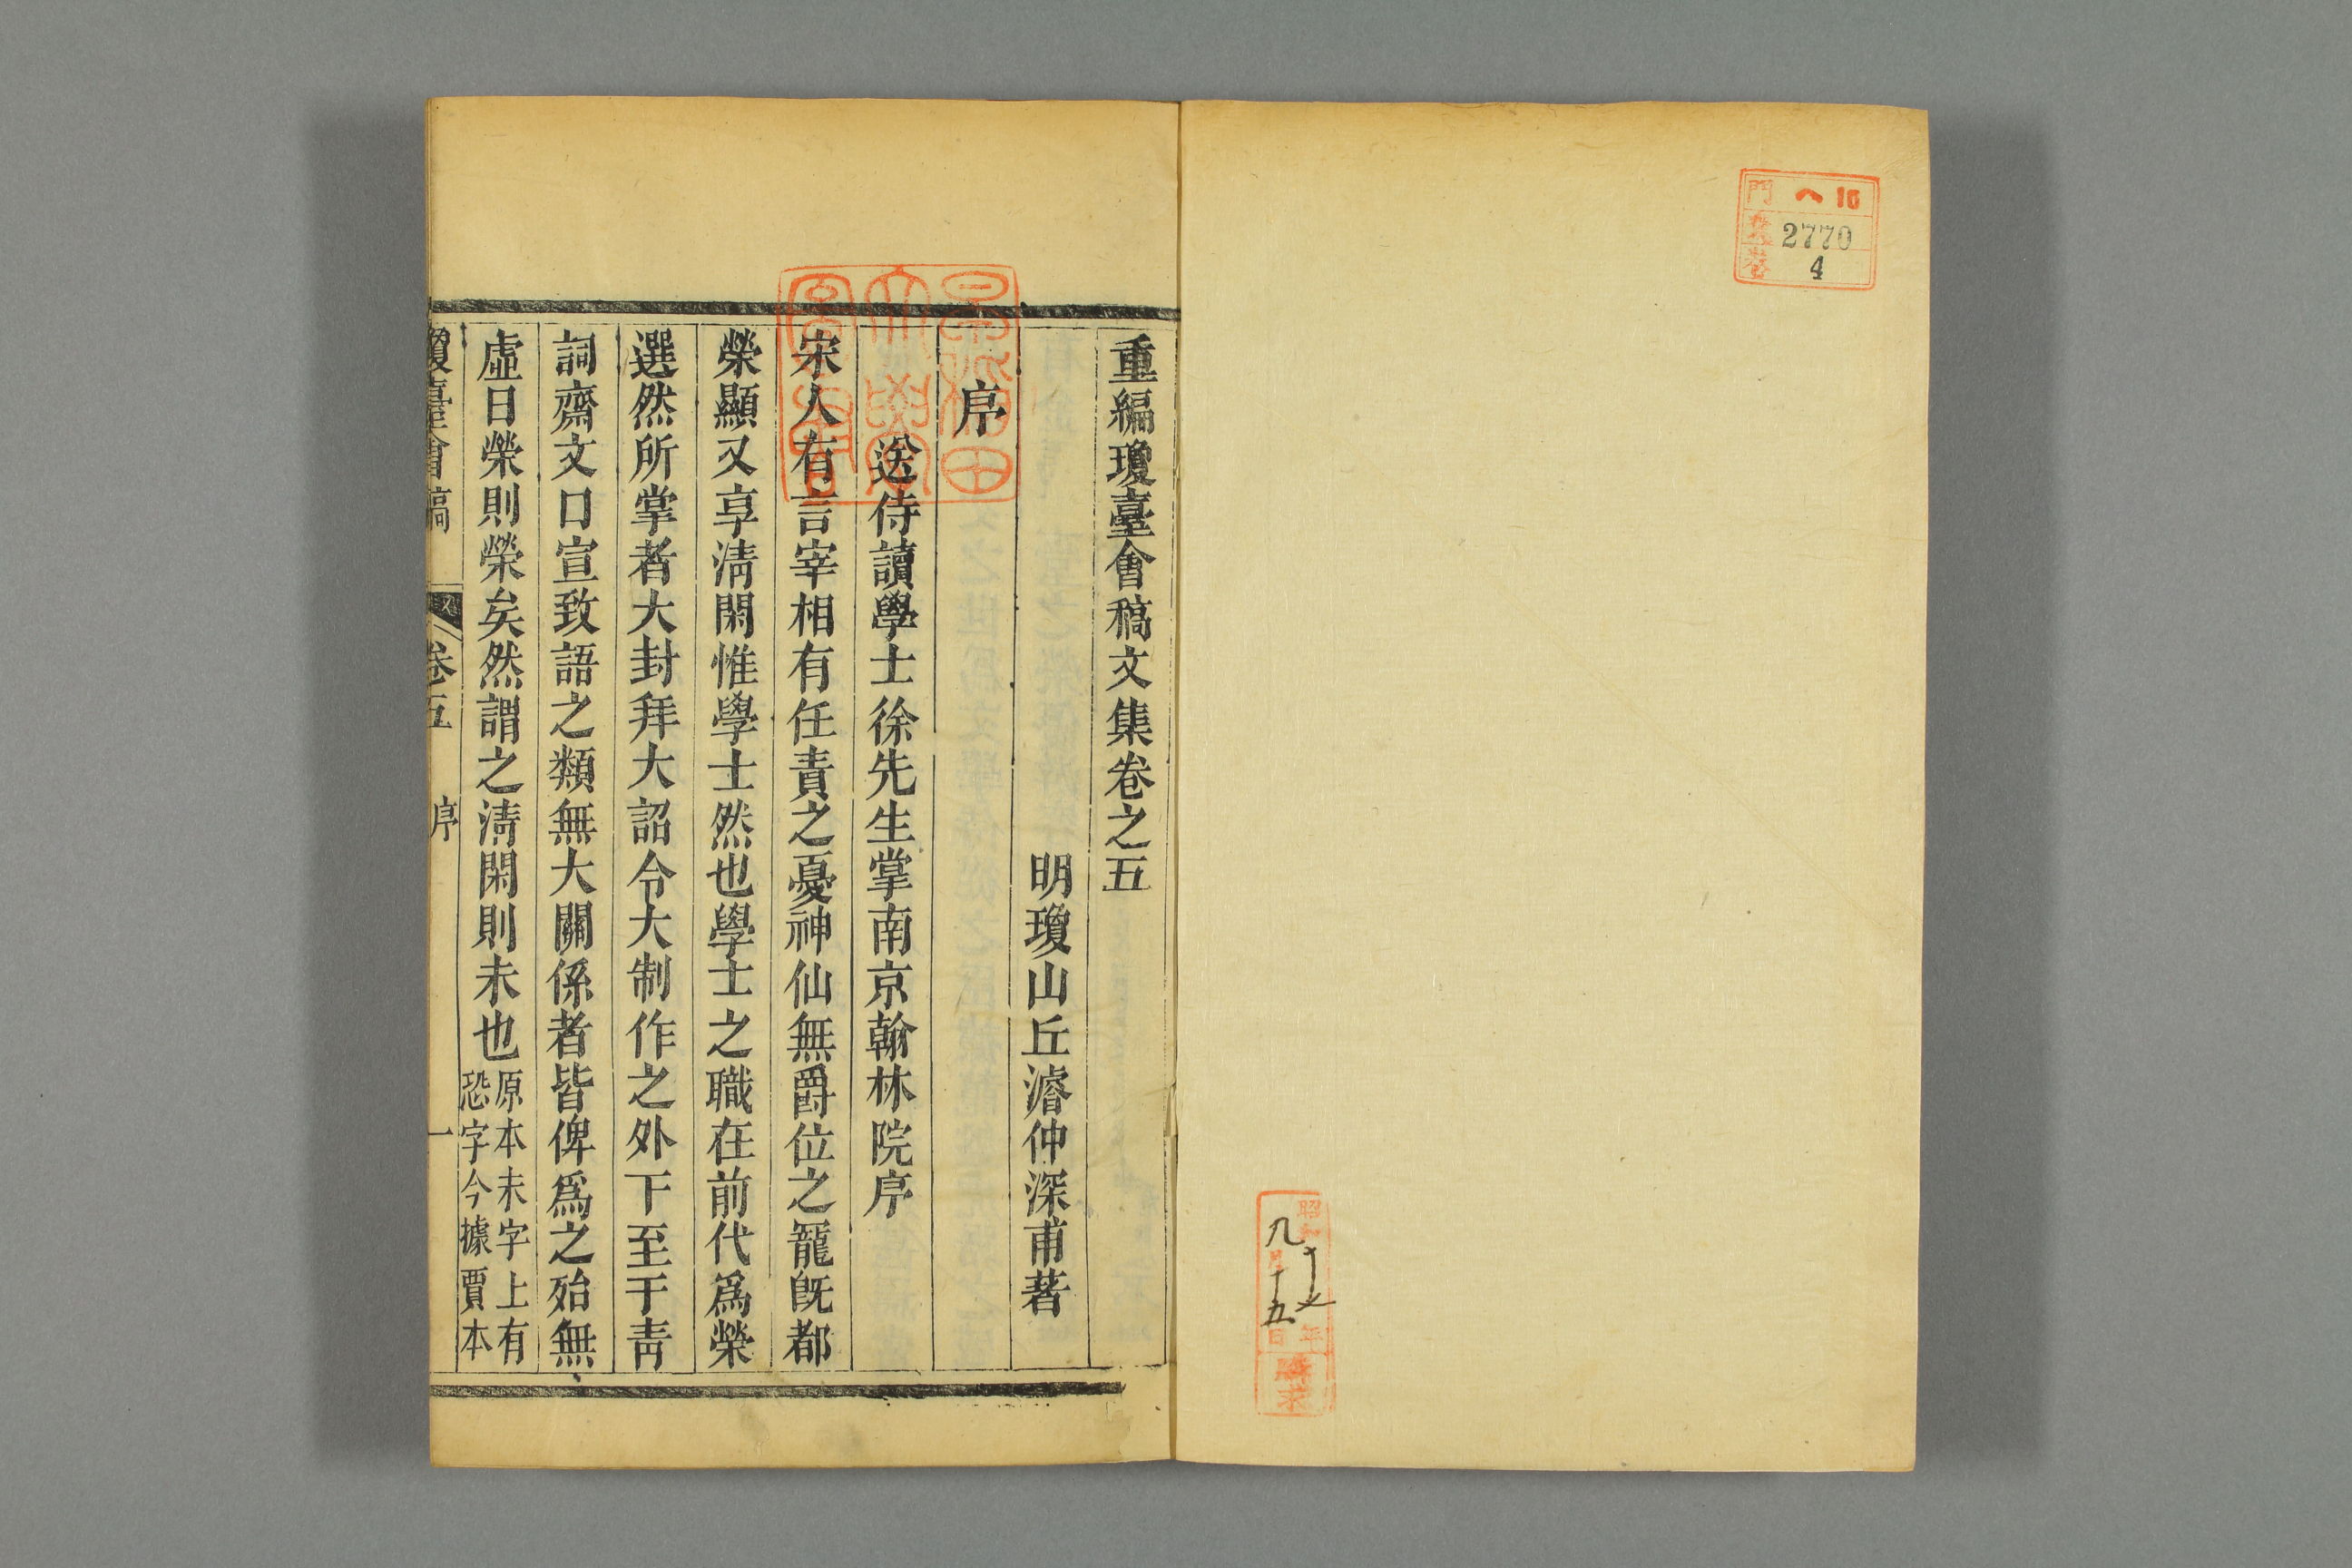 門 ヘ 16
號 2770
卷 4
昭和十七年
九月十五日
購求
重編瓊臺會稿文集卷之五
明瓊山丘濬仲深甫著
序
送侍讀學士徐先生掌南京翰林院序
宋人有言宰相有任責之憂神仙無爵位之寵旣都
榮顯又享清閑惟學士然也學士之職在前代爲榮
選然所掌者大封拜大詔令大制作之外下至于青
詞齋文口宣致語之類無大關係者皆俾爲之殆無
虛日榮則榮矣然謂之清閑則未也原本未字上有
恐字今據賈本
瓊臺會稿 卷五 序 一